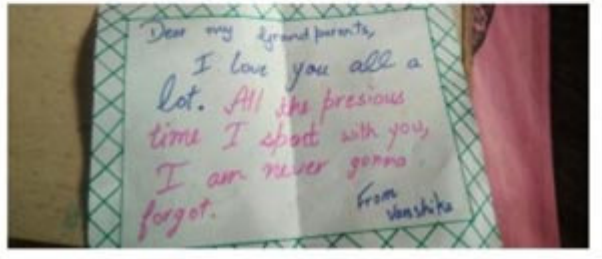 Dear my Grandparents,
I love you all a
lot. All the presious
time I spost with you,
I am never gonna
forgot.
From
Vanshika